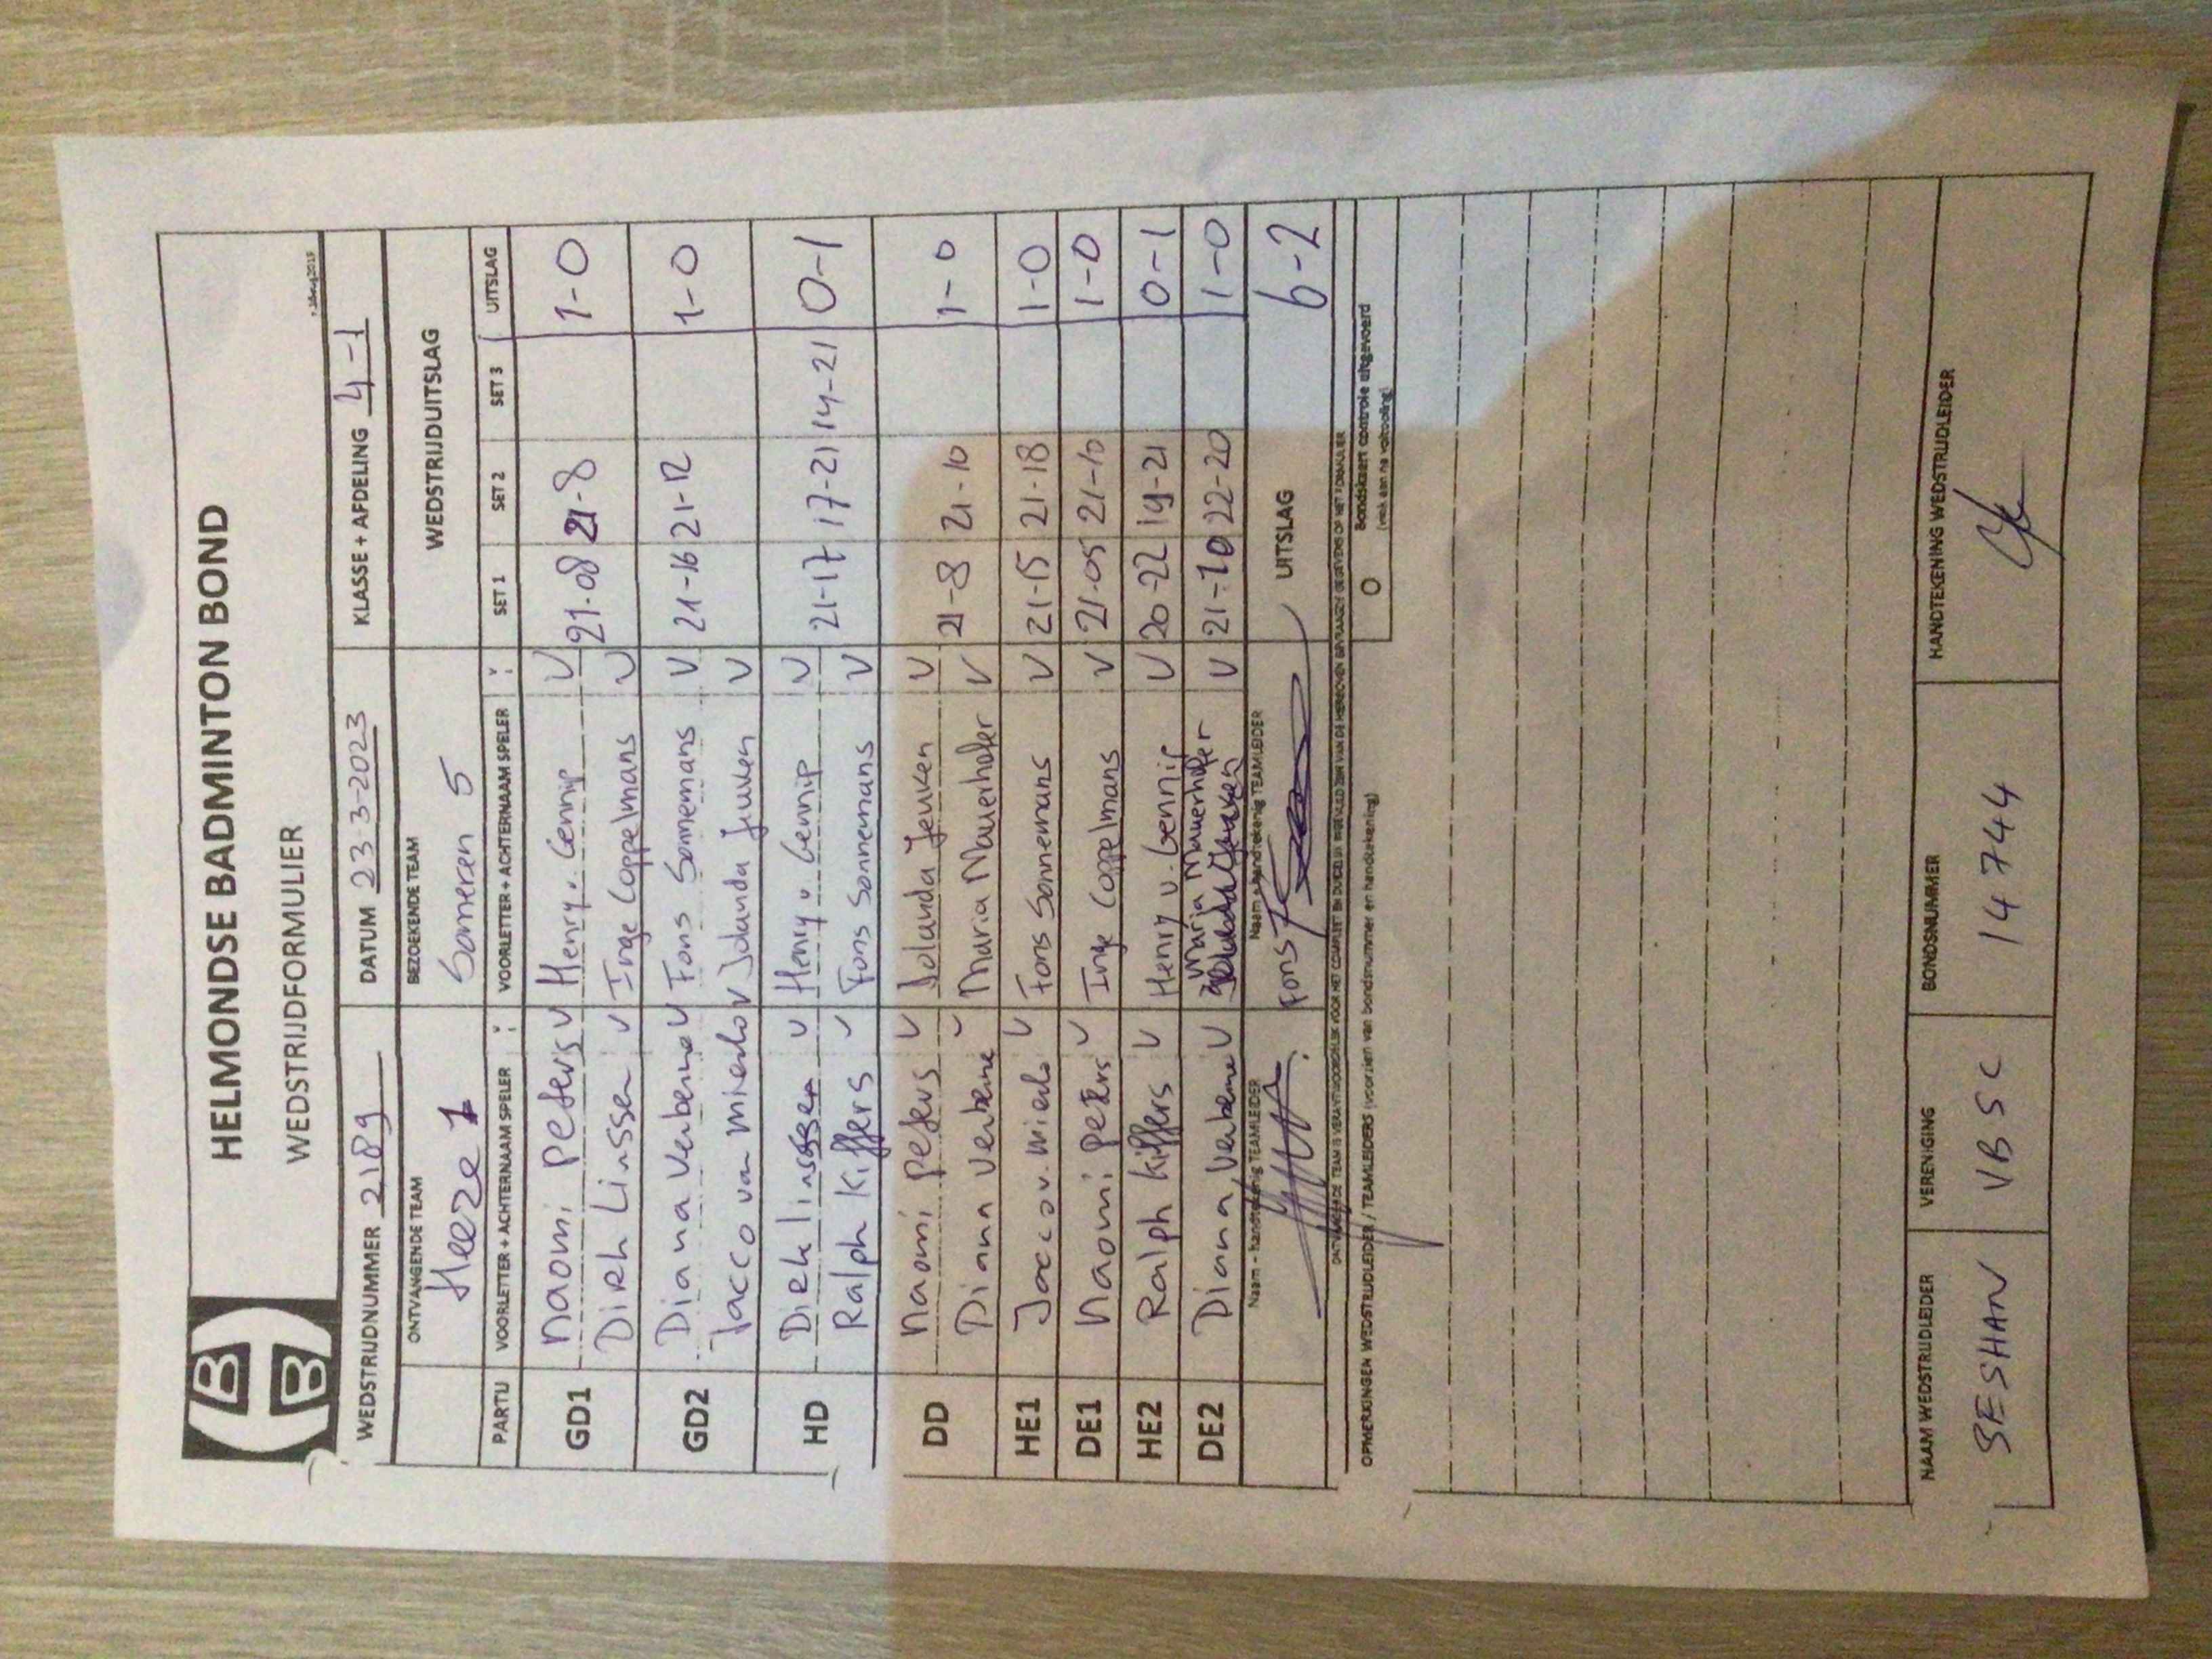 HELMONDSE BADMINTON BOND
WEDSTRIJDFORMULIER
WEDSTRIJDNUMMER 2189 DATUM 23-3-2023 KLASSE + AFDELING 4-1
ONTVANGENDE TEAM BEZOEKENDE TEAM WEDSTRIJDUITSLAG
Heeze 1 Someren 5
PARTIJ VOORLETTER + ACHTERNAAM SPELER VOORLETTER + ACHTERNAAM SPELER SET 1 SET 2 SET 3 UITSLAG
GD1 Naomi Peters V Henry v. Gennip V 21-08 21-8 1-0
Dirk Linssen V Inge Coppelmans V
GD2 Diana Verberne V Fons Sonnemans V 21-16 21-12 1-0
Jacco van Mierlo V Jolanda Jeuken V
HD Dirk Linssen V Henry v. Gennip V 21-17 17-21 14-21 0-1
Ralph Kiffers V Fons Sonnemans V
DD Naomi Peters V Jolanda Jeuken V 21-8 21-10 1-0
Diana Verberne V Maria Mauerhofer V
HE1 Jacco v. Mierlo V Fons Sonnemans V 21-15 21-18 1-0
DE1 Naomi Peters V Inge Coppelmans V 21-05 21-10 1-0
HE2 Ralph Kiffers V Henry v. Gennip V 20-22 19-21 0-1
DE2 Diana Verberne V Maria Mauerhofer V 21-10 22-20 1-0
Naam - handtekenig TEAMLEIDER Naam - handtekenig TEAMLEIDER UITSLAG 6-2
Fons
ONTVANGENDE TEAM IS VERANTWOORDELIJK VOOR HET COMPLEET EN DUIDELIJK INGEVULD ZIJN VAN DE HIERBOVEN GEVRAAGDE GEGEVENS OP HET FORMULIER
OPMERKINGEN WEDSTRIJDLEIDER / TEAMLEIDERS (voorzien van bondsnummer en handtekening)
O Bondskaart controle uitgevoerd
(vink aan na voltooiing)
NAAM WEDSTRIJDLEIDER VERENIGING BONDSNUMMER HANDTEKENING WEDSTRIJDLEIDER
SESHAN VBSC 14744